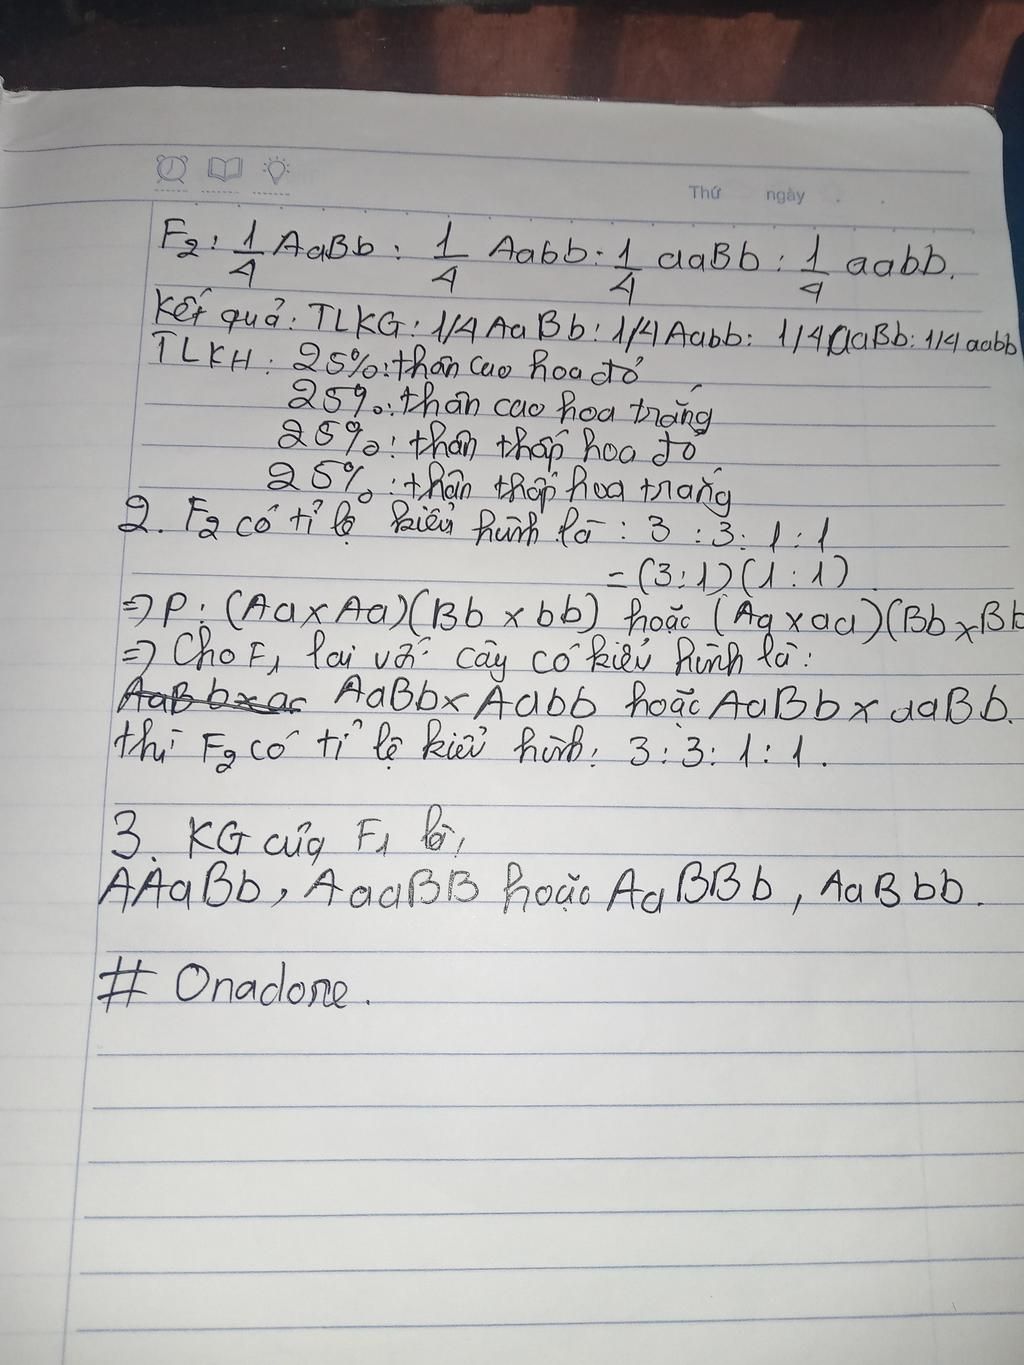 Thứ ngày
F2: 1/4 AaBb : 1/4 Aabb : 1/4 aaBb : 1/4 aabb.
Kết quả: TLKG: 1/4 AaBb: 1/4 Aabb: 1/4 aaBb: 1/4 aabb
TLKH: 25%: thân cao hoa đỏ
25%: thân cao hoa trắng
25%: thân thấp hoa đỏ
25%: thân thấp hoa trắng
2. F2 có tỉ lệ kiểu hình là: 3 : 3 : 1 : 1
= (3:1)(1:1)
=> P: (Aa x Aa)(Bb x bb) hoặc (Aa x aa)(Bb x Bb
=> Cho F1 lai với cây có kiểu hình là:
AaBb x Aabb hoặc AaBb x aaBb.
thì F2 có tỉ lệ kiểu hình: 3:3:1:1.
3. KG của F1 là,
AAaBb, AaaBB hoặc AaBBb, AaBbb.
# Onadone.